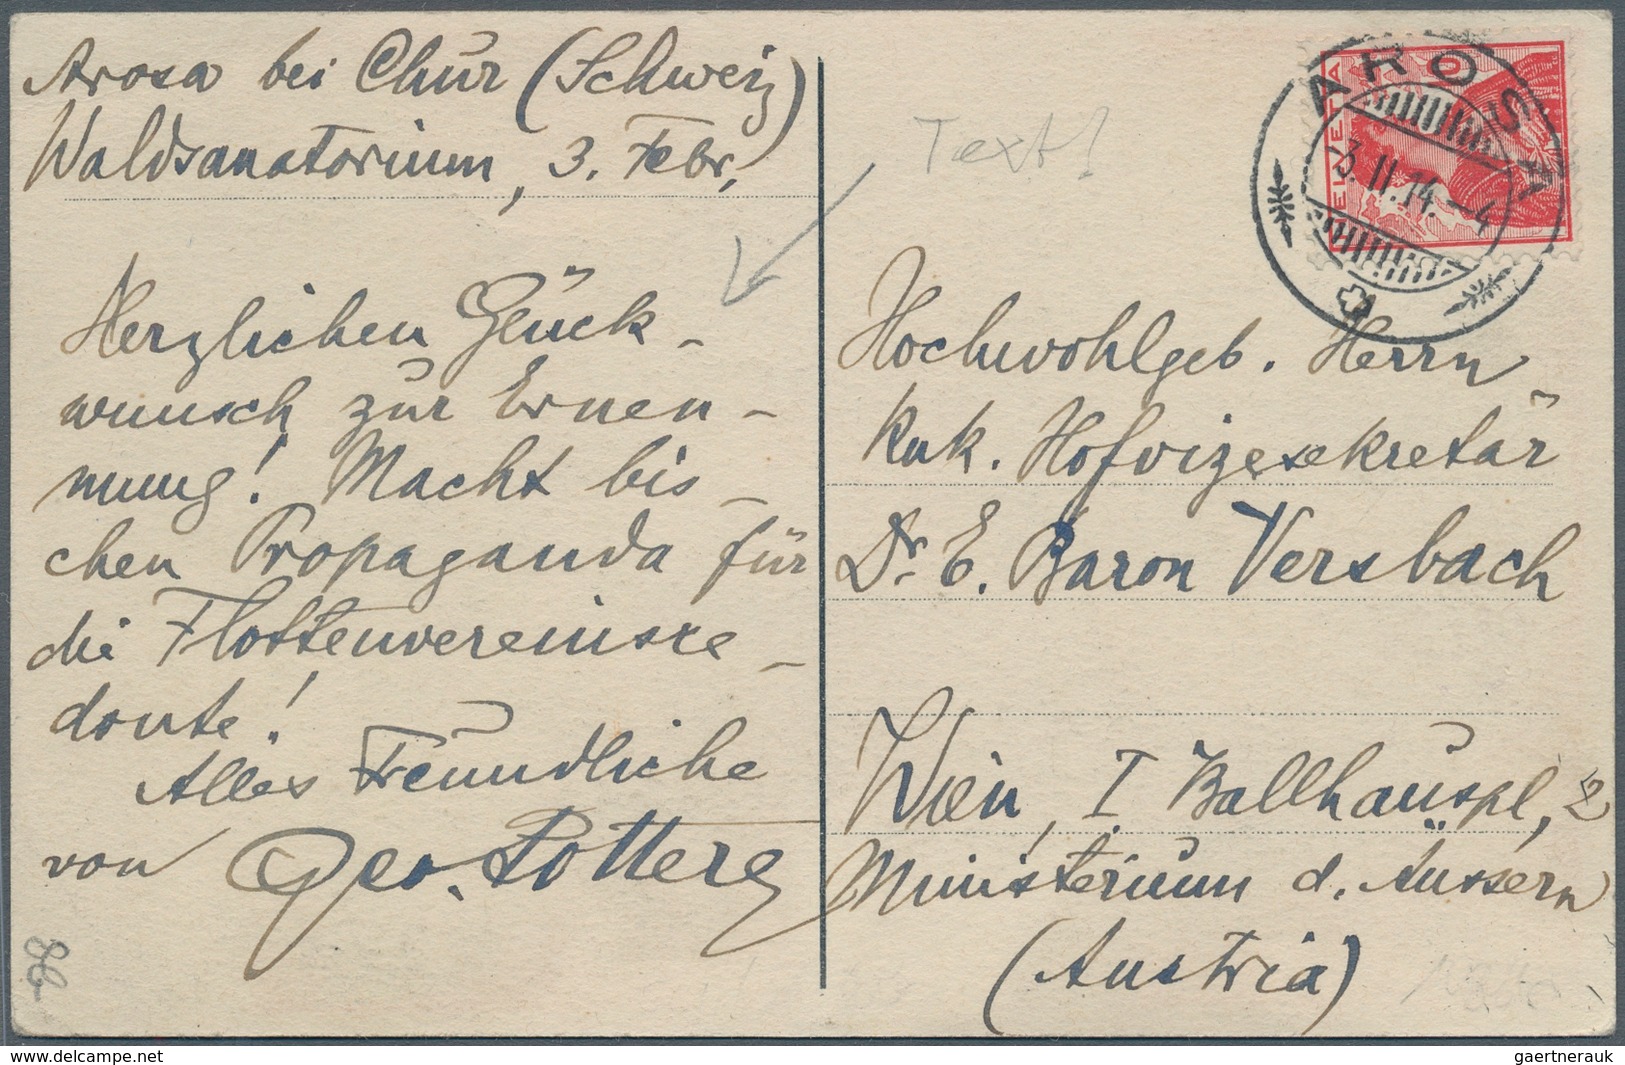 Arosa bei Chur (Schweiz)
Waldsanatorium, 3. Febr.
Herzlichen Glück-
wunsch zur Ernen-
nung! Macht bis-
chen Propaganda für
die Flottenvereinsre-
doute!
Alles Freundliche
von Geo. Pottere
Text!
HELVETIA
AROSA
-3.II.14.-4
Hochwohlgeb. Herrn
Kuk. Hofvizesekretär
Dr. E. Baron Versbach
Wien, I Ballhauspl, 2
Ministerium d. Äussern
(Austria)
www.delcampe.net
gaertnerauk